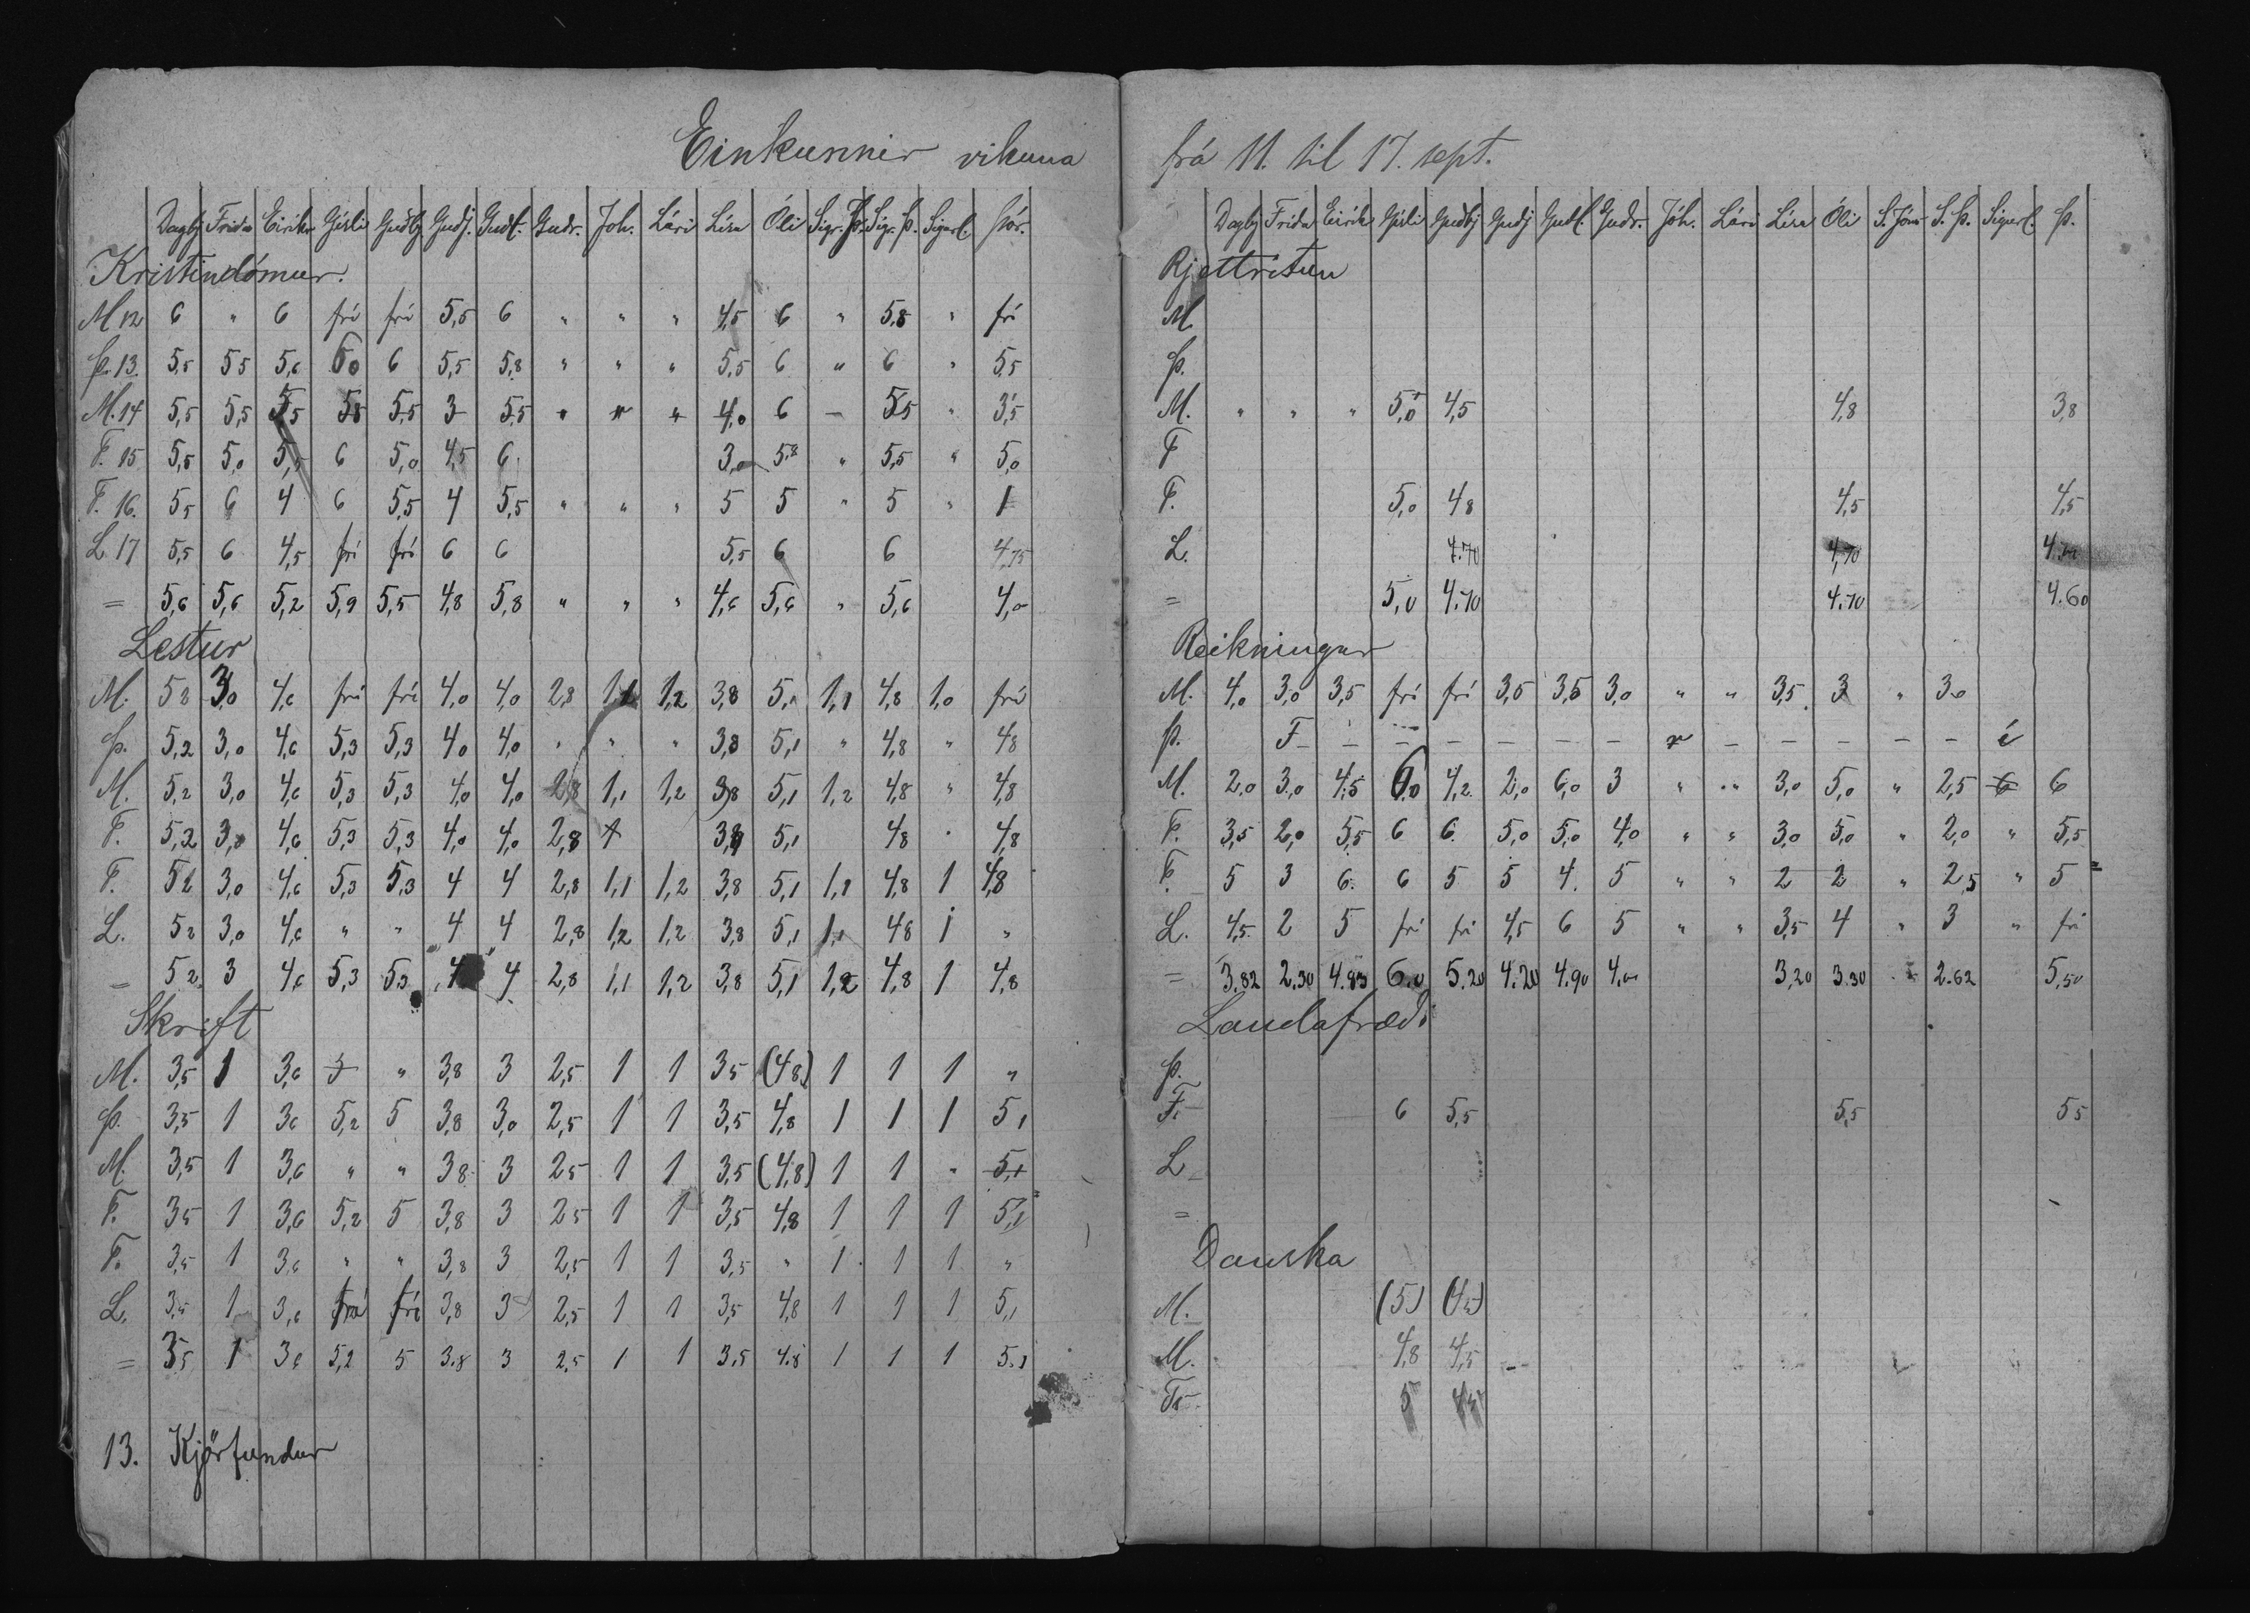 Einkunnir vikuna
Dagbj Frida Eirikr Gísli Guðbj Gudj. Gudl. Gudr. Joh. Lári Lísa Óli Sigr. Jó. Sigr. Þ. Sigurl. Þór.
Kristindómur.
M 12 6 " 6 frí frí 5,5 6 " " " 4,5 6 " 5,8 " frí
Þ. 13. 5,5 5 5 5,6 6,0 6 5,5 5,8 " " " 5,5 6 " 6 " 5,5
M. 14 5,5 5,5 5,5 5,8 5,5 3 5,5 " " " 4,0 6 – 5,5 " 3,5
F. 15 5,5 5,0 5,5 6 5,0 4,5 6 3,0 5,8 " 5,5 " 5,0
F. 16. 5,5 6 4 6 5,5 4 5,5 " " " 5 5 " 5 " 1
L. 17 5,5 6 4,5 frí frí 6 6 5,5 6 6 4,75
= 5,6 5,6 5,2 5,9 5,5 4,8 5,8 " " " 4,6 5,6 " 5,6 4,0
Lestur
M. 5 2 3,0 4,6 frí frí 4,0 4,0 2,8 1,1 1,2 3,8 5,1 1,1 4,8 1,0 frí
Þ. 5,2 3,0 4,6 5,3 5,3 4,0 4,0 " " " 3,8 5,1 " 4,8 " 4 8
M. 5,2 3,0 4,6 5,3 5,3 4,0 4,0 2,8 1,1 1,2 3,8 5,1 1,2 4,8 " 4,8
F. 5,2 3,0 4,6 5,3 5,3 4,0 4,0 2,8 1 3,8 5,1 4 8 " 4,8
F. 5 2 3,0 4,6 5,3 5,3 4 4 2,8 1,1 1,2 3,8 5,1 1,1 4,8 1 4,8
L. 5 2 3,0 4,6 " " 4 4 2,8 1,2 1,2 3,8 5,1 1,1 4 8 1 "
= 5 2 3 4,6 5,3 5,3 4 4 2,8 1,1 1,2 3,8 5,1 1,2 4,8 1 4,8
Skrift
M. 3,5 1 3,6 5 " 3,8 3 2,5 1 1 3 5 (4 8) 1 1 1 "
Þ. 3,5 1 3 6 5,2 5 3,8 3,0 2,5 1 1 3,5 4,8 1 1 1 5 1
M. 3,5 1 3,6 " " 3 8 3 2 5 1 1 3,5 (4,8) 1 1 " 5,1
F. 3 5 1 3,6 5,2 5 3,8 3 2 5 1 1 3,5 4,8 1 1 1 5,1
F. 3,5 1 3,6 " " 3,8 3 2,5 1 1 3,5 " 1 1 1 "
L. 3,5 1 3,6 frí frí 3,8 3 2,5 1 1 3,5 4,8 1 1 1 5,1
= 3 5 1 3 6 5,2 5 3.8 3 2,5 1 1 3,5 4.8 1 1 1 5.1
13. Kjörfundur
frá 11. til 17. sept.
Dagbj Frida Eirik Gísli Guðbj Gudj Gudl Gudr. Jóh. Lári Lísa Óli S. Jóns S. Þ. Sigurl. Þ.
Rjettritun
M
Þ.
M. " " " 5,0 4,5 4,8 3,8
F
F. 5,0 4 8 4,5 4,5
L. 4.70 4,70
= 5,0 4.70 4.70 4.60
Reikningur
M. 4,0 3,0 3,5 frí frí 3,5 3,5 3,0 " " 3,5 3 " 3.0
Þ. F – – – – – – – r – – – – – í
M. 2,0 3,0 4,5 6,0 4,2 2,0 6,0 3 " " 3,0 5,0 " 2,5 6 6
F. 3,5 2,0 5,5 6 6 5,0 5,0 4,0 " " 3,0 5,0 " 2,0 " 5,5
F. 5 3 6. 6 5 5 4. 5 " " 2 2 " 2,5 " 5
L. 4,5 2 5 frí frí 4,5 6 5 " " 3,5 4 " 3 " frí
= 3.82 2.30 4.83 6.0 5.20 4.20 4.90 4.00 3,20 3.30 2.62 5,50
Landafræði
Þ.
F. 6 5,5 5,5 5 5
L
=
Danska
M. (5) (4,5)
M. 4,8 4,5 –
F. 5 4,5